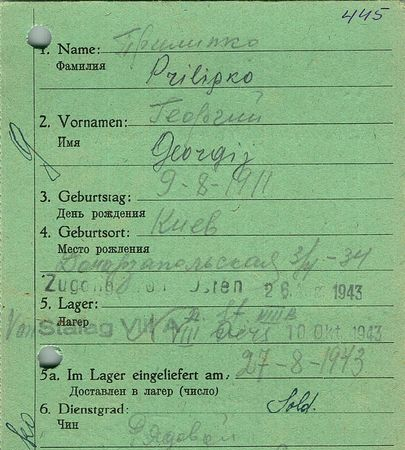 445
1. Name: Прилипко
Фамилия Prilipko
2. Vornamen: Георгий
Имя Georgij
3. Geburtstag: 9-8-1911
День рождения
4. Geburtsort: Киев
Место рождения
3/4-34
Zugang Osten 1943
5. Lager: VIII B
Лагерь Stalag VIII 10 Okt. 1943
5a. Im Lager eingeliefert am: 27-8-1943
Доставлен в лагер (число)
6. Dienstgrad: Sold.
Чин Рядовой